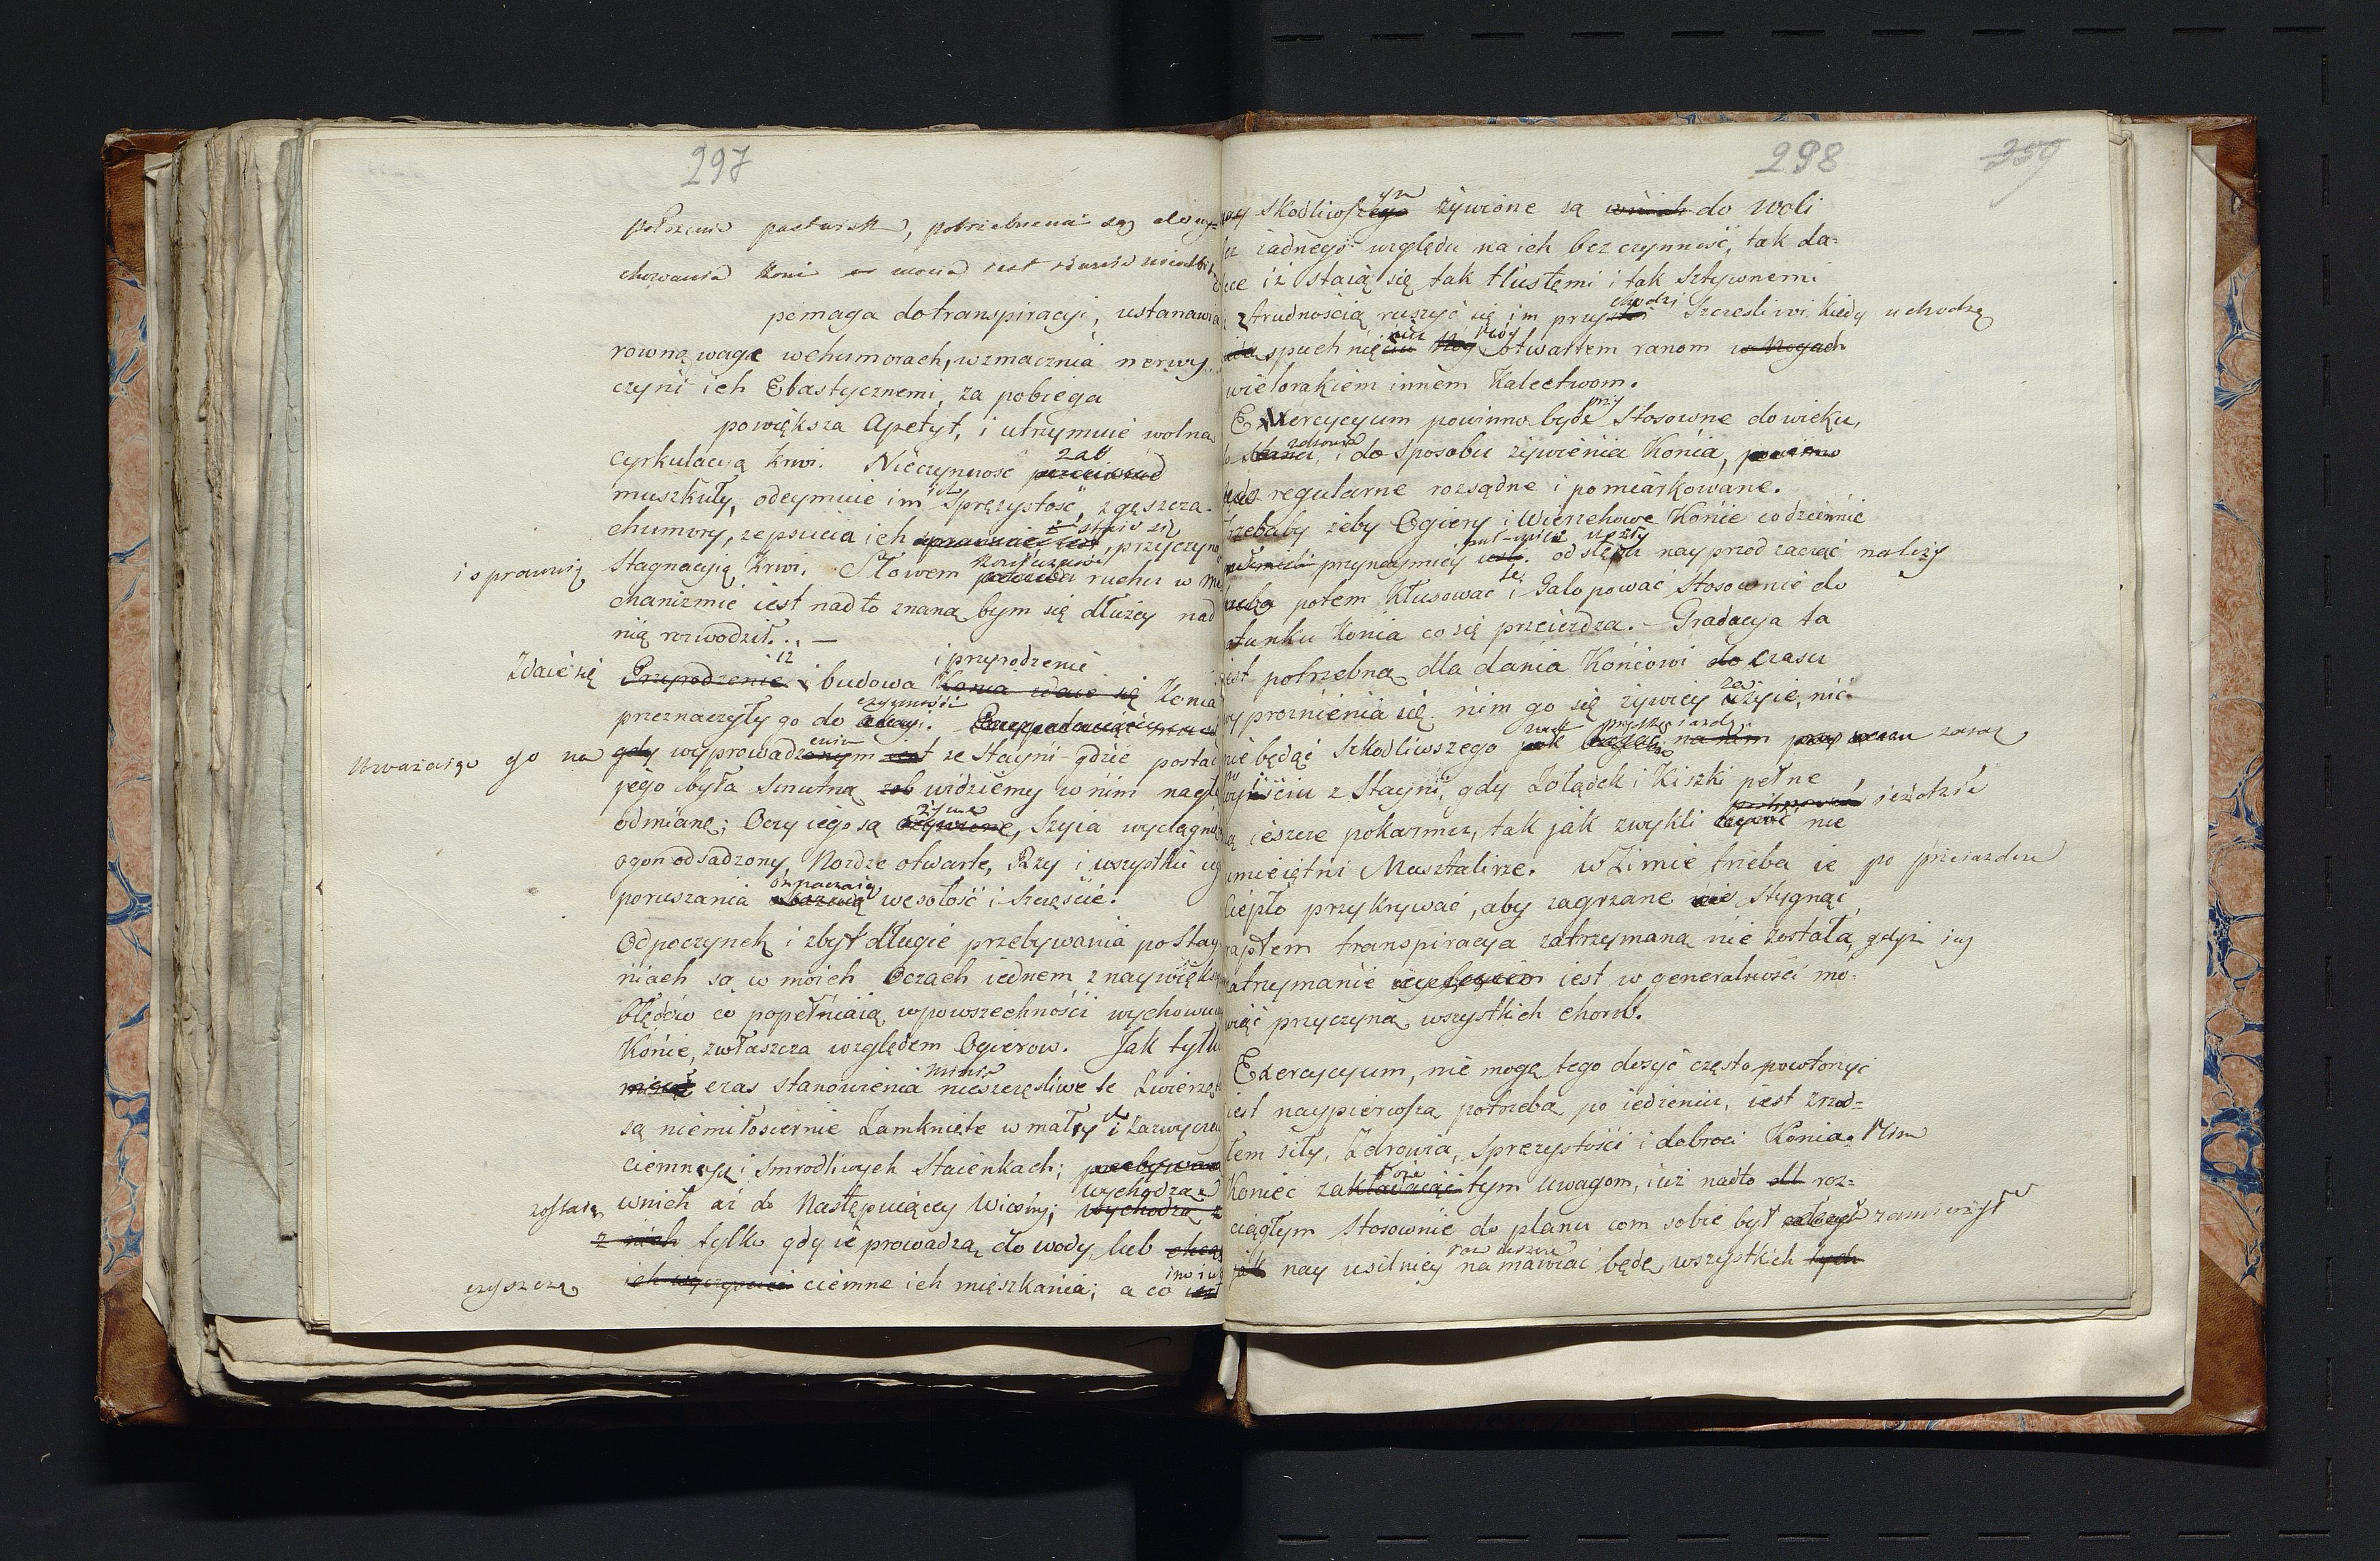 297
położenie pastwisk, potrzebnemi są do wy=
chowania koni
pomaga dotranspiracyi, ustanawia
rowną wagę wehumorach, wzmacznia nerwy
czyni ich Elastycznemi, za pobiega
powiększa Apetyt, i utrzymuie wolna
cyrkulacyą krwi. Nieczynność
muszkuły, odeymuie im ich Sprężystość, zgęszcza
chumory, zepsucia ich staie się, przyczyną
i oprawuią Stagnacyią Krwi. Słowem ruchu w me
chanizmie iest nadto znaną bym się dłużey nad
nią rozwodził. . —
Zdaie się Przyrodzenie iż budowa i przyrodzenie Konia zdaie się Konia
przeznaczyły go do czynności
Uważaiąc go na gdy wyprowadzeniu iest ze Stayni gdzie postać
jego była smutną widziemy w nim nagłą
odmianę; Oczy iego są żywe, Szyia wyciągnię
ogon odsadzony, Nozdrze otwarte, Rży i wszystkie ie
poruszania oznaczaią wesołość i Szczęście.
Odpoczynek i zbyt długie przebywania po Stay
niach są w moich Oczach iednem z naywiększ
błędów co popełniaią wpowszechności wychowuią
Konie, zwłaszcza względem Ogierow. Jak tylko
minie czas stanowienia nieszczęsliwe te Zwierzęt
są niemiłosiernie Zamknięte w małych i zazwyczay
ciemnych i Smrodliwych Staienkach;
zostaią wnich aż do Następuiącey Wiosny; wychodzą z
z nich tylko gdy ie prowadzą do wody, lub
czyszczą ciemne ich mięszkania; a co
298
359
szkodliwszego żywione są do woli
żadnego względu na ich bezczynność, tak da=
lece iż staią się tak tłustemi i tak Sztywnemi
z trudnością ruszyć się im przychodzi Szczesliwi kiedy uchodzą
spuchnięciu Nóg otwartem ranom w Nogach
wielorakiem innem Kalectwom.
Exercycyum powinno bydź przy Stosowne do wieku,
zdrowia i do Sposobu żywienia Konia,
regularne rozsądne i pomiarkowane.
Trzebaby żeby Ogiery i Wierzchowe Konie codziennie
przynaymniey. od stępu nayprzod zacząć należy
potem Kłusować i Galopować Stosownie do
gatunku Konia co się przeieżdza. — Gradacya ta
iest potrzebna dla dania Koniowi do czasu
wyprożnienia się nim go się żywiey zażyie, nic
nie będąć Szkodliwszego zaraz
po wyiściu z Stayni, gdy Żołądek i Kiszki pełne
są ieszcze pokarmu, tak jak zwykli ieździć nie
umieiętni Masztalirze. w Zimie trzeba ie po przeiazdzie
Ciepło przykrywać, aby zagrzane nie Stygnąć
raptem transpiracya zatrzymaną nie została, gdyż iey
zatrzymanie iest w generalności mo=
wiąć przyczyną wszystkich chorob.
Exercycyum, nie mogę tego dosyć często powtorzyć
iest naypierwszą potrzebą po iedzeniu, iest zrod=
łem siły, Zdrowia, Sprezystości i dobroci Konia. Nim
Koniec tym uwagom, iuż nadto roz=
ciągłym Stosownie do planu com sobie był zamierzył
nay usilniey raz ieszcze namawiać będę wszystkich tych